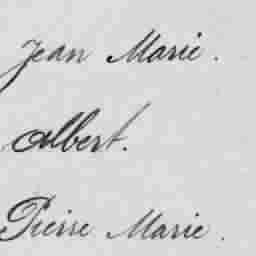 Jean Marie.
Albert.
Pierre Marie.